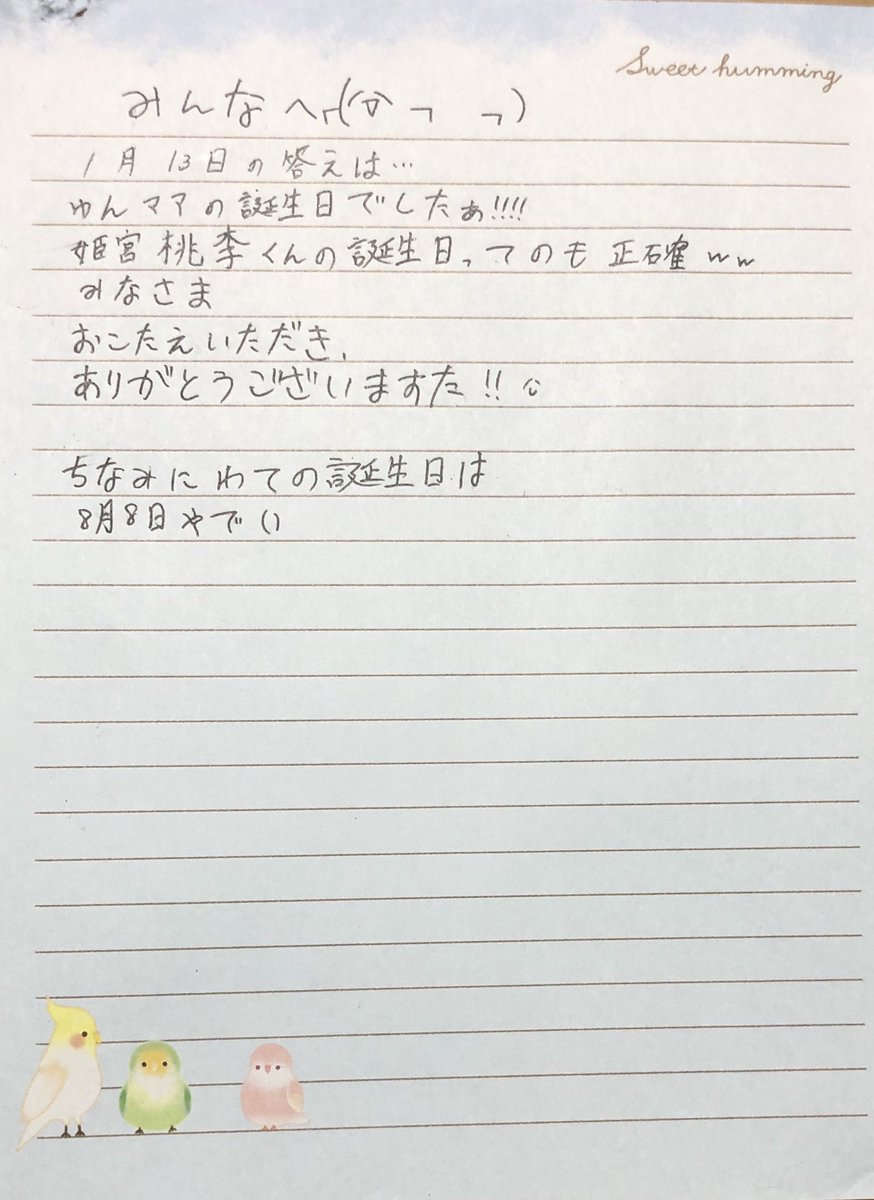 Sweet humming
みんなへ
1月13日の答えは…
ゆんママの誕生日でしたぁ!!!!
姫宮桃李くんの誕生日ってのも正確ww
みなさま
おこたえいただき、
ありがとうございますた!!
ちなみにわての誕生日は
8月8日やでい